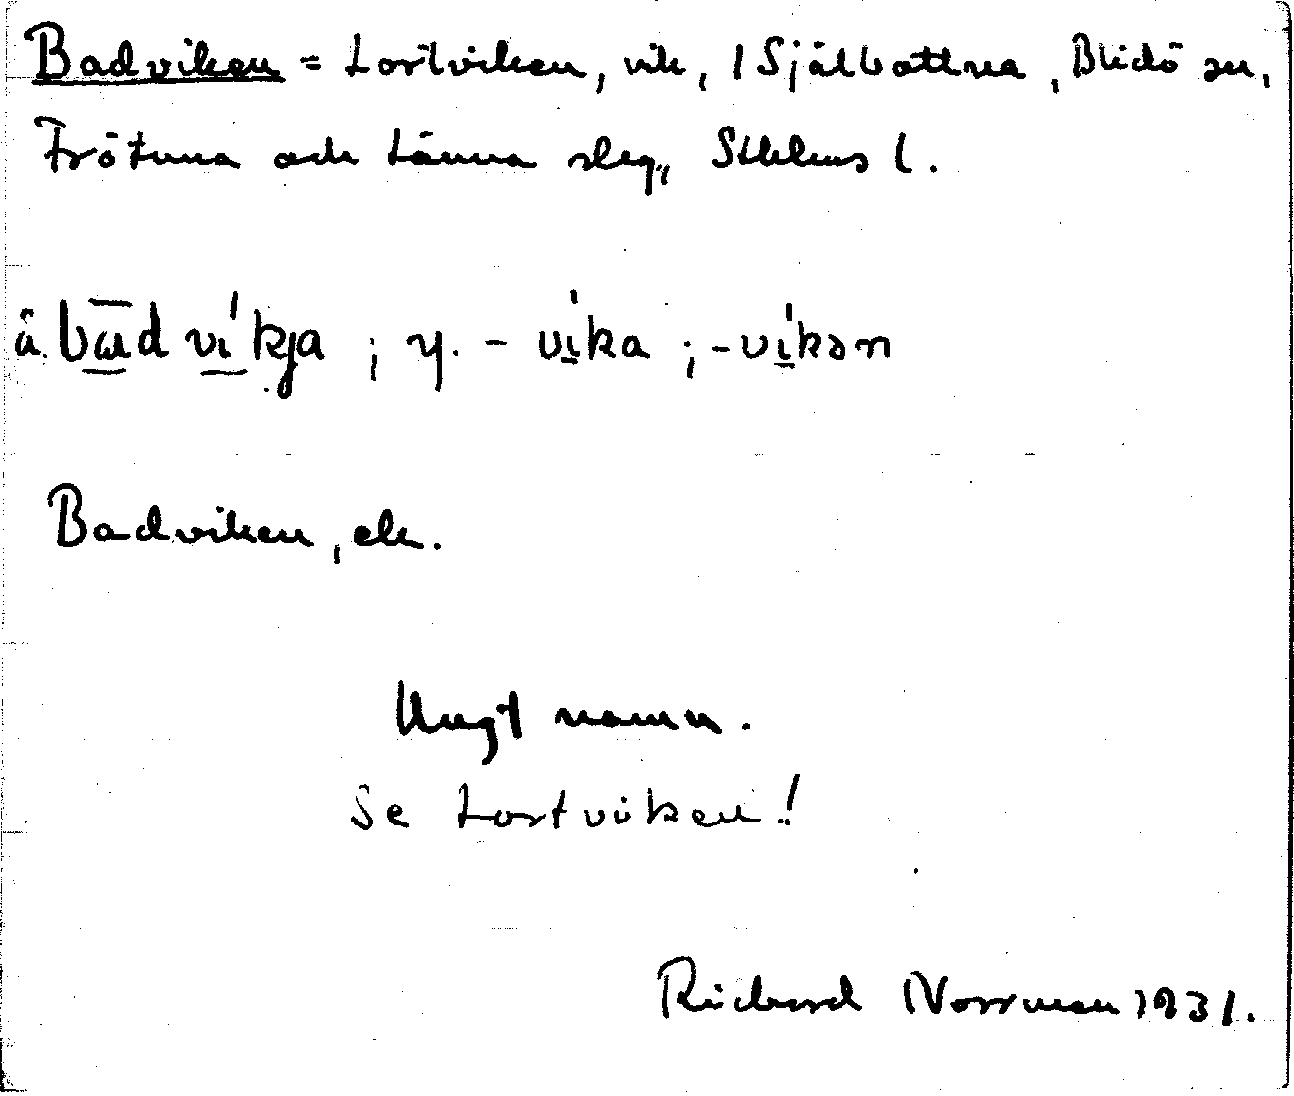 Badviken = Lortviken, vik, i Själbottna, Blidö sn,
Frötuna och Länna slag, Sthlms l.
å bad vikja ; y. - vika ; - vikən
Badviken, ek.
Ungt namn.
Se Lortviken!
Richard Norrman 1931.